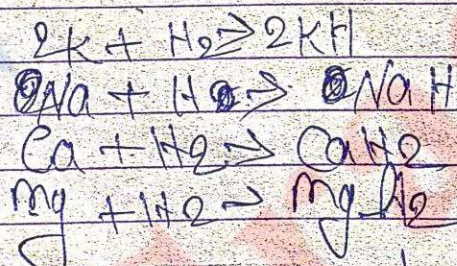 2K + H2 → 2KH
Na + H → NaH
Ca + H2 → CaH2
Mg + H2 → MgH2